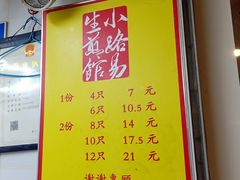 小路易
生煎館
1份 4只 7 元
6只 10.5 元
2份 8只 14 元
10只 17.5 元
12只 21 元
谢谢惠顾